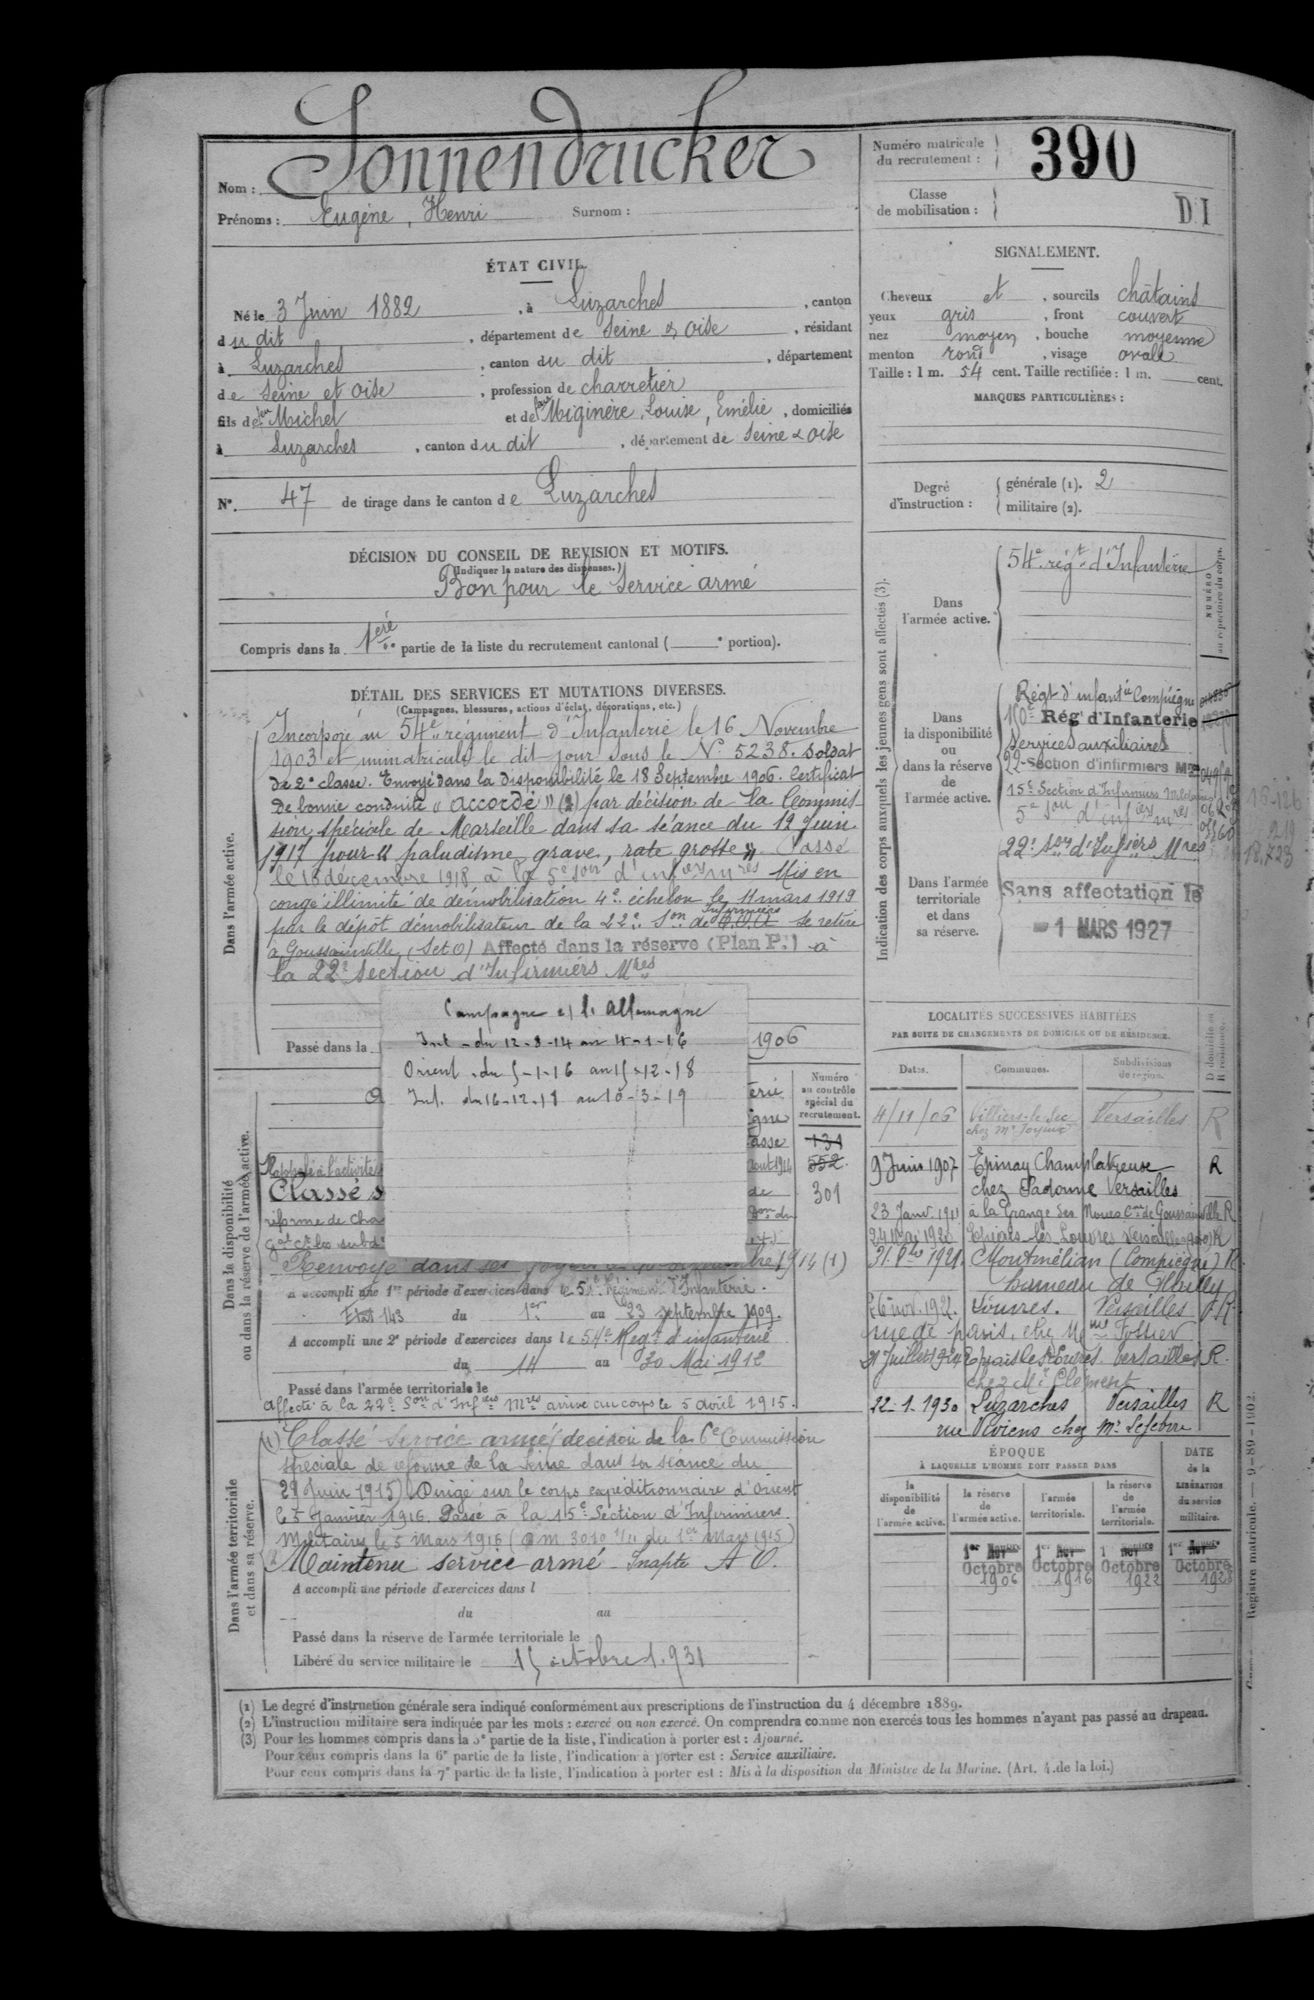 Nom : Sonnendrucker
Prénoms : Eugène, Henri Surnom :
Numéro matricule du recrutement : 390
Classe de mobilisation :
D I
ÉTAT CIVIL
Né le 3 Juin 1882, à Luzarches, canton
du dit, département de Seine & Oise, résidant
à Luzarches, canton du dit, département
de Seine et Oise, profession de charretier
fils de feu Michel et de feue Miginère, Louise, Emélie, domiciliés
à Luzarches, canton du dit, département de Seine & Oise
N° 47 de tirage dans le canton de Luzarches
SIGNALEMENT.
Cheveux et, sourcils châtains
yeux gris, front couvert
nez moyen, bouche moyenne
menton rond, visage ovale
Taille : 1 m. 54 cent. Taille rectifiée : 1 m. cent.
MARQUES PARTICULIÈRES :
Degré d'instruction : générale (1). 2
militaire (2).
DÉCISION DU CONSEIL DE REVISION ET MOTIFS.
(Indiquer la nature des dispenses.)
Bon pour le Service armé
Compris dans la 1ère partie de la liste du recrutement cantonal ( e portion).
DÉTAIL DES SERVICES ET MUTATIONS DIVERSES.
(Campagnes, blessures, actions d'éclat, décorations, etc.)
Dans l'armée active.
Incorporé au 54e régiment d'Infanterie le 16 Novembre
1903 et immatriculé le dit jour sous le N° 5238. Soldat
de 2e classe. Envoyé dans la disponibilité le 18 Septembre 1906. Certificat
de bonne conduite "accordé" (2) par décision de la Commis
sion spéciale de Marseille dans sa séance du 12 Juin
1917 pour "paludisme grave, rate grosse". Passé
le 16 décembre 1918 à la 5e Son d'infiers mres Mis en
congé illimité de démobilisation 4e échelon le 11 mars 1919
par le dépôt démobilisateur de la 22e Son de C.O.A Infirmiers se retire
à Goussainville (S et O) Affecté dans la réserve (Plan P.) à
la 22e Section d'Infirmiers Mres
Campagne c/ l'Allemagne
Int - du 12-8-14 au 4-1-16
Orient - du 5-1-16 au 15-12-18
Int. du 16-12-18 au 10-3-19
Passé dans la
1906
Dans la disponibilité ou dans la réserve de l'armée active.
Numéro au contrôle spécial du recrutement.
131
552
301
Rappelé à l'activité
août 1914
Classé s
réforme de
Renvoyé dans ses foyers
1914 (1)
A accompli une 1re période d'exercices dans le 54e Régiment d'Infanterie.
Etat 143 du 1er au 23 septembre 1909.
A accompli une 2e période d'exercices dans le 54e Régt d'infanterie
du 14 au 30 Mai 1912
Passé dans l'armée territoriale le
affecté à la 22e Son d'Infiers Mres arrivé au corps le 5 avril 1915.
Dans l'armée territoriale et dans sa réserve.
(1) Classé Service armé (décision de la 6e Commission
spéciale de réforme de la Seine dans sa séance du
29 Juin 1915) Dirigé sur le corps expéditionnaire d'Orient
le 5 Janvier 1916. Passé à la 15e Section d'Infirmiers
Militaires le 5 Mars 1916
(2) Maintenu service armé Inapte A O.
A accompli une période d'exercices dans l
du au
Passé dans la réserve de l'armée territoriale le
Libéré du service militaire le 15 octobre 1931
Indication des corps auxquels les jeunes gens sont affectés (3).
NUMÉRO au répertoire du corps.
Dans l'armée active.
54e régt d'Infanterie
Dans la disponibilité ou dans la réserve de l'armée active.
Régt d'infantie Compiègne
Rég d'Infanterie
Services auxiliaires
22 Section d'infirmiers Mres
15e Section d'Infirmiers Militaires
5e Son d'infiers mres
22e Son d'Infiers Mres
18,723
Dans l'armée territoriale et dans sa réserve.
Sans affectation le
1 MARS 1927
LOCALITÉS SUCCESSIVES HABITÉES
PAR SUITE DE CHANGEMENTS DE DOMICILE OU DE RÉSIDENCE.
Dates. Communes. Subdivisions de région. D domicile ou R résidence.
4/11/06 Villiers-le-Sec Versailles R
chez Mr Joyeux
9 Juin 1907 Epinay Champlatreuse R
chez Versailles
23 Janv. 1911 à la Grange des Noues Cne de Goussainville R
24 Mai 1920 Epiais-les Louvres Versailles R
1921 Montmélian (Compiègne) R
hameau de
26 nov. 1922. Louvres. Versailles R.
rue de paris, chez
Juillet Epiais les Louvres Versailles R.
chez Mr Clément
22-1-1930 Luzarches Versailles R
rue chez Mr Lefebvre
ÉPOQUE
À LAQUELLE L'HOMME DOIT PASSER DANS
DATE de la LIBÉRATION du service militaire.
la disponibilité de l'armée active.
la réserve de l'armée active. 1er Octobre 1906
l'armée territoriale. 1er Octobre 1916
la réserve de l'armée territoriale. 1 Octobre 1922
1er Octobre
(1) Le degré d'instruction générale sera indiqué conformément aux prescriptions de l'instruction du 4 décembre 1889.
(2) L'instruction militaire sera indiquée par les mots : exercé ou non exercé. On comprendra comme non exercés tous les hommes n'ayant pas passé au drapeau.
(3) Pour les hommes compris dans la 5e partie de la liste, l'indication à porter est : Ajourné.
Pour ceux compris dans la 6e partie de la liste, l'indication à porter est : Service auxiliaire.
Pour ceux compris dans la 7e partie de la liste, l'indication à porter est : Mis à la disposition du Ministre de la Marine. (Art. 4 de la loi.)
Registre matricule. — 9-89-1902.